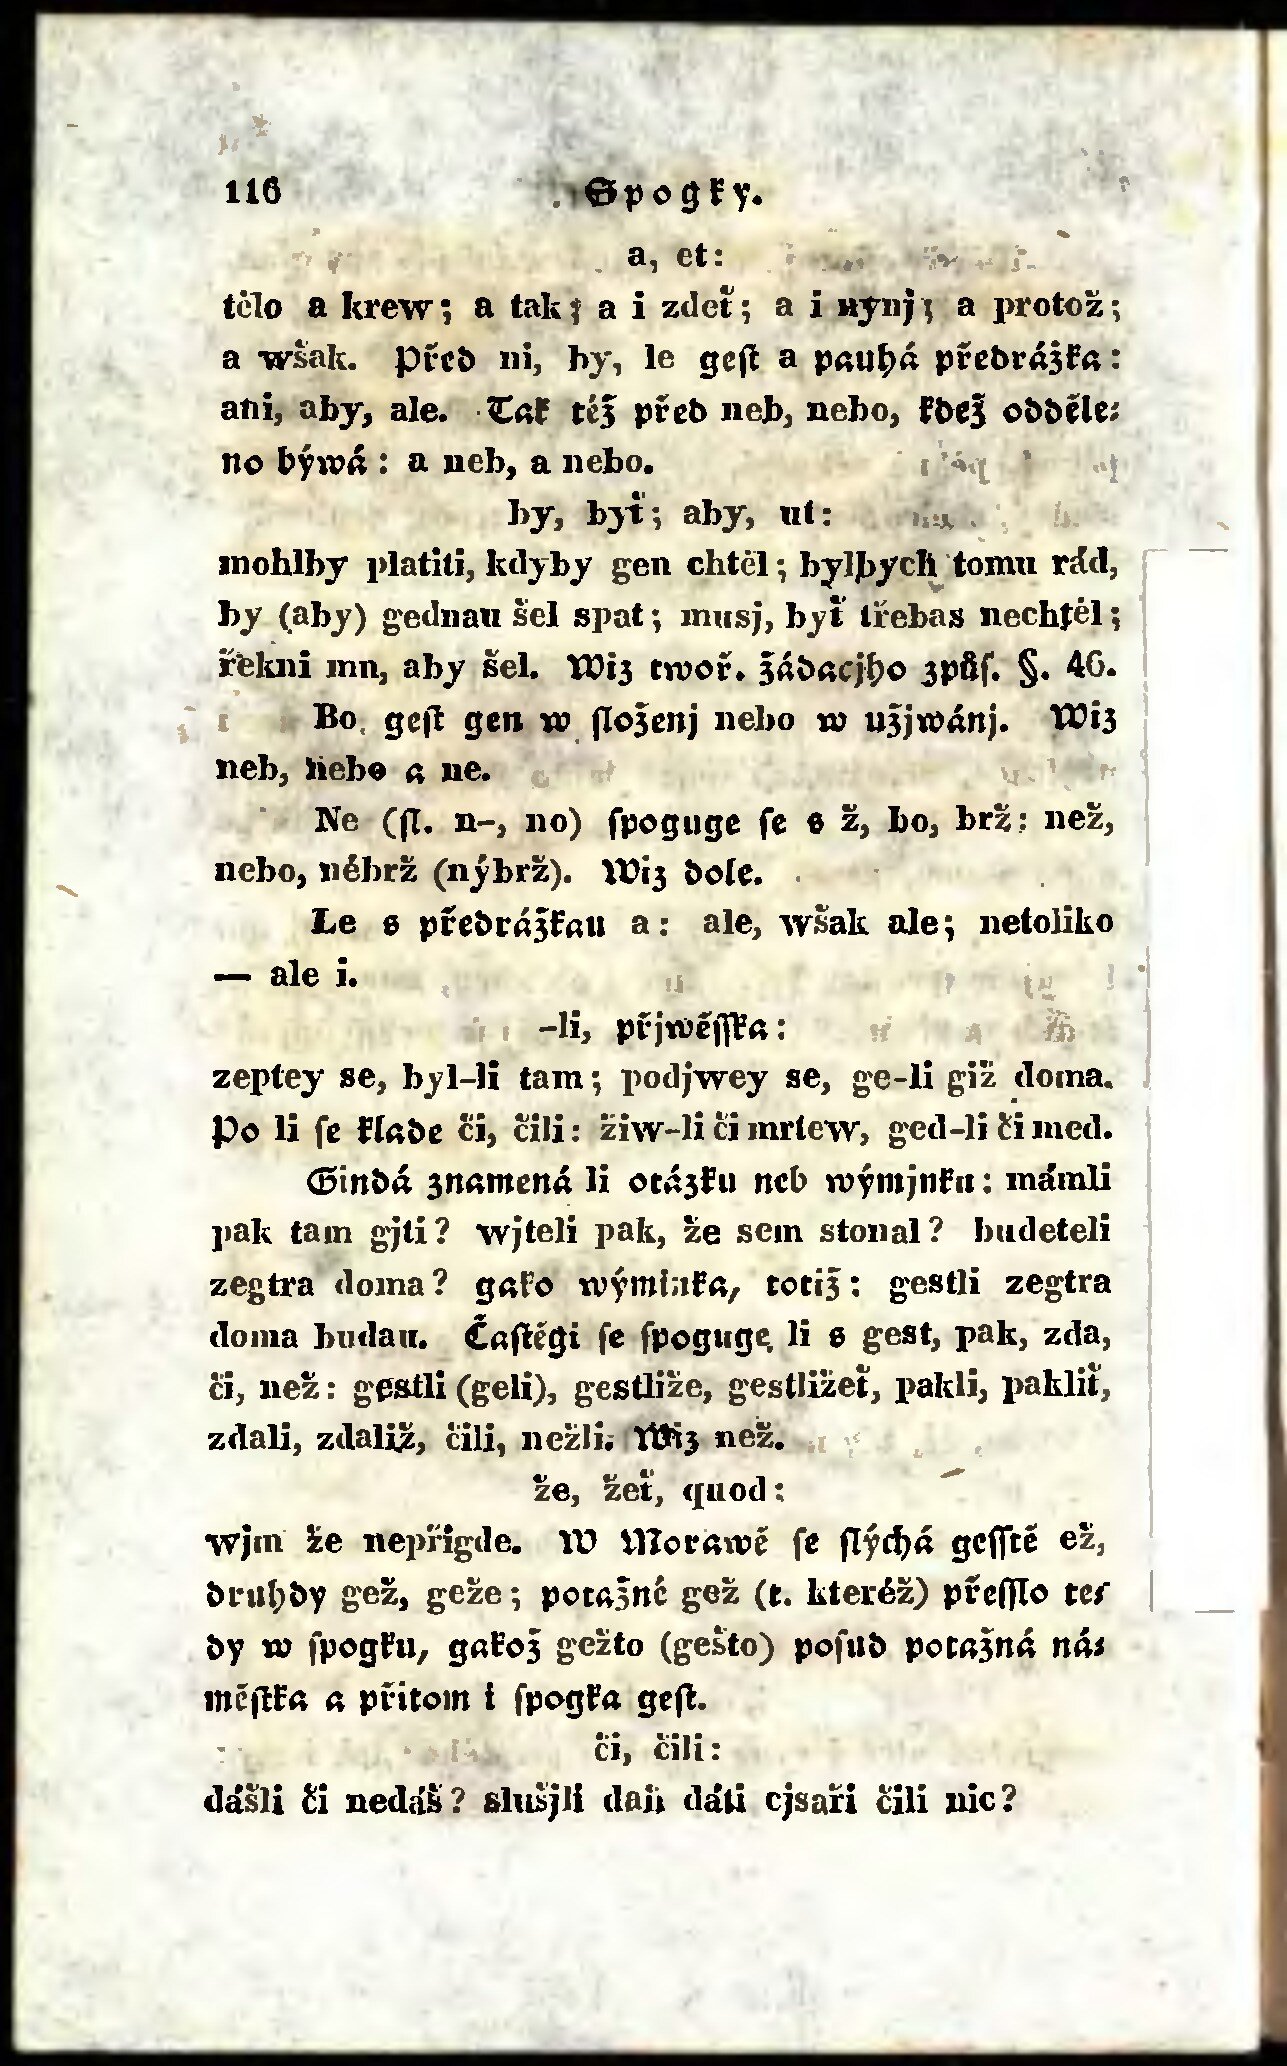 116 Spogky.
a, et:
tělo a krew; a tak; a i zdeť; a i nynj; a protož;
a wšak. Před ni, by, le geſt a pauhá předrážka:
ani, aby, ale. Tak též před neb, nebo, kdež odděle⸗
no býwá: a neb, a nebo.
by, byť; aby, ut:
mohlby platiti, kdyby gen chtěl; bylbych tomu rád,
by (aby) gednau šel spat; musj, byť třebas nechtěl;
řekni mu, aby šel. Wiz twoř. žádacjho způſ. §. 46.
Bo, geſt gen w ſloženj nebo w užjwánj. Wiz
neb, nebo a ne.
Ne (ſl. n-, no) ſpoguge ſe s ž, bo, brž: než,
nebo, nébrž (nýbrž). Wiz dole.
Le s předrážkau a: ale, wšak ale; netoliko
— ale i.
-li, přjwěſſka:
zeptey se, byl-li tam; podjwey se, ge-li giž doma.
Po li ſe klade či, čili: žiw-li či mrtew, ged-li či med.
Gindá znamená li otázku neb wýmjnku: mámli
pak tam gjti? wjteli pak, že sem stonal? budeteli
zegtra doma? gako wýminka, totiž: gestli zegtra
doma budau. Čaſtěgi ſe ſpoguge li s gest, pak, zda,
či, než: gestli (geli), gestliže, gestližeť, pakli, pakliť,
zdali, zdaliž, čili, nežli. Wiz než.
že, žeť, quod:
wjm že nepřigde. W Morawě ſe ſlýchá geſſtě ež,
druhdy gež, geže; potažné gež (t. kteréž) přeſſlo te⸗
dy w ſpogku, gakož gežto (gešto) poſud potažná ná⸗
měſtka a přitom i ſpogka geſt.
či, čili:
dášli či nedáš? slušjli daň dáti cjsaři čili nic?